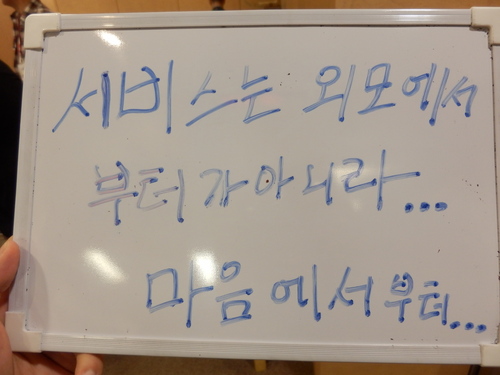 서비스는 외모에서
부터가아니라...
마음에서부터...